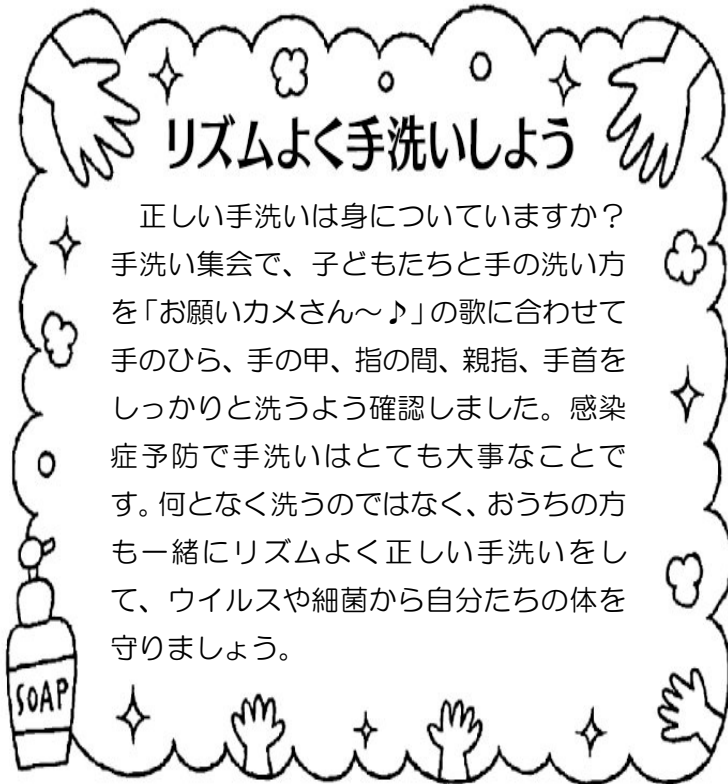 リズムよく手洗いしよう
　正しい手洗いは身についていますか？
手洗い集会で、子どもたちと手の洗い方
を「お願いカメさん～♪」の歌に合わせて
手のひら、手の甲、指の間、親指、手首を
しっかりと洗うよう確認しました。感染
症予防で手洗いはとても大事なことで
す。何となく洗うのではなく、おうちの方
も一緒にリズムよく正しい手洗いをし
て、ウイルスや細菌から自分たちの体を
守りましょう。
SOAP